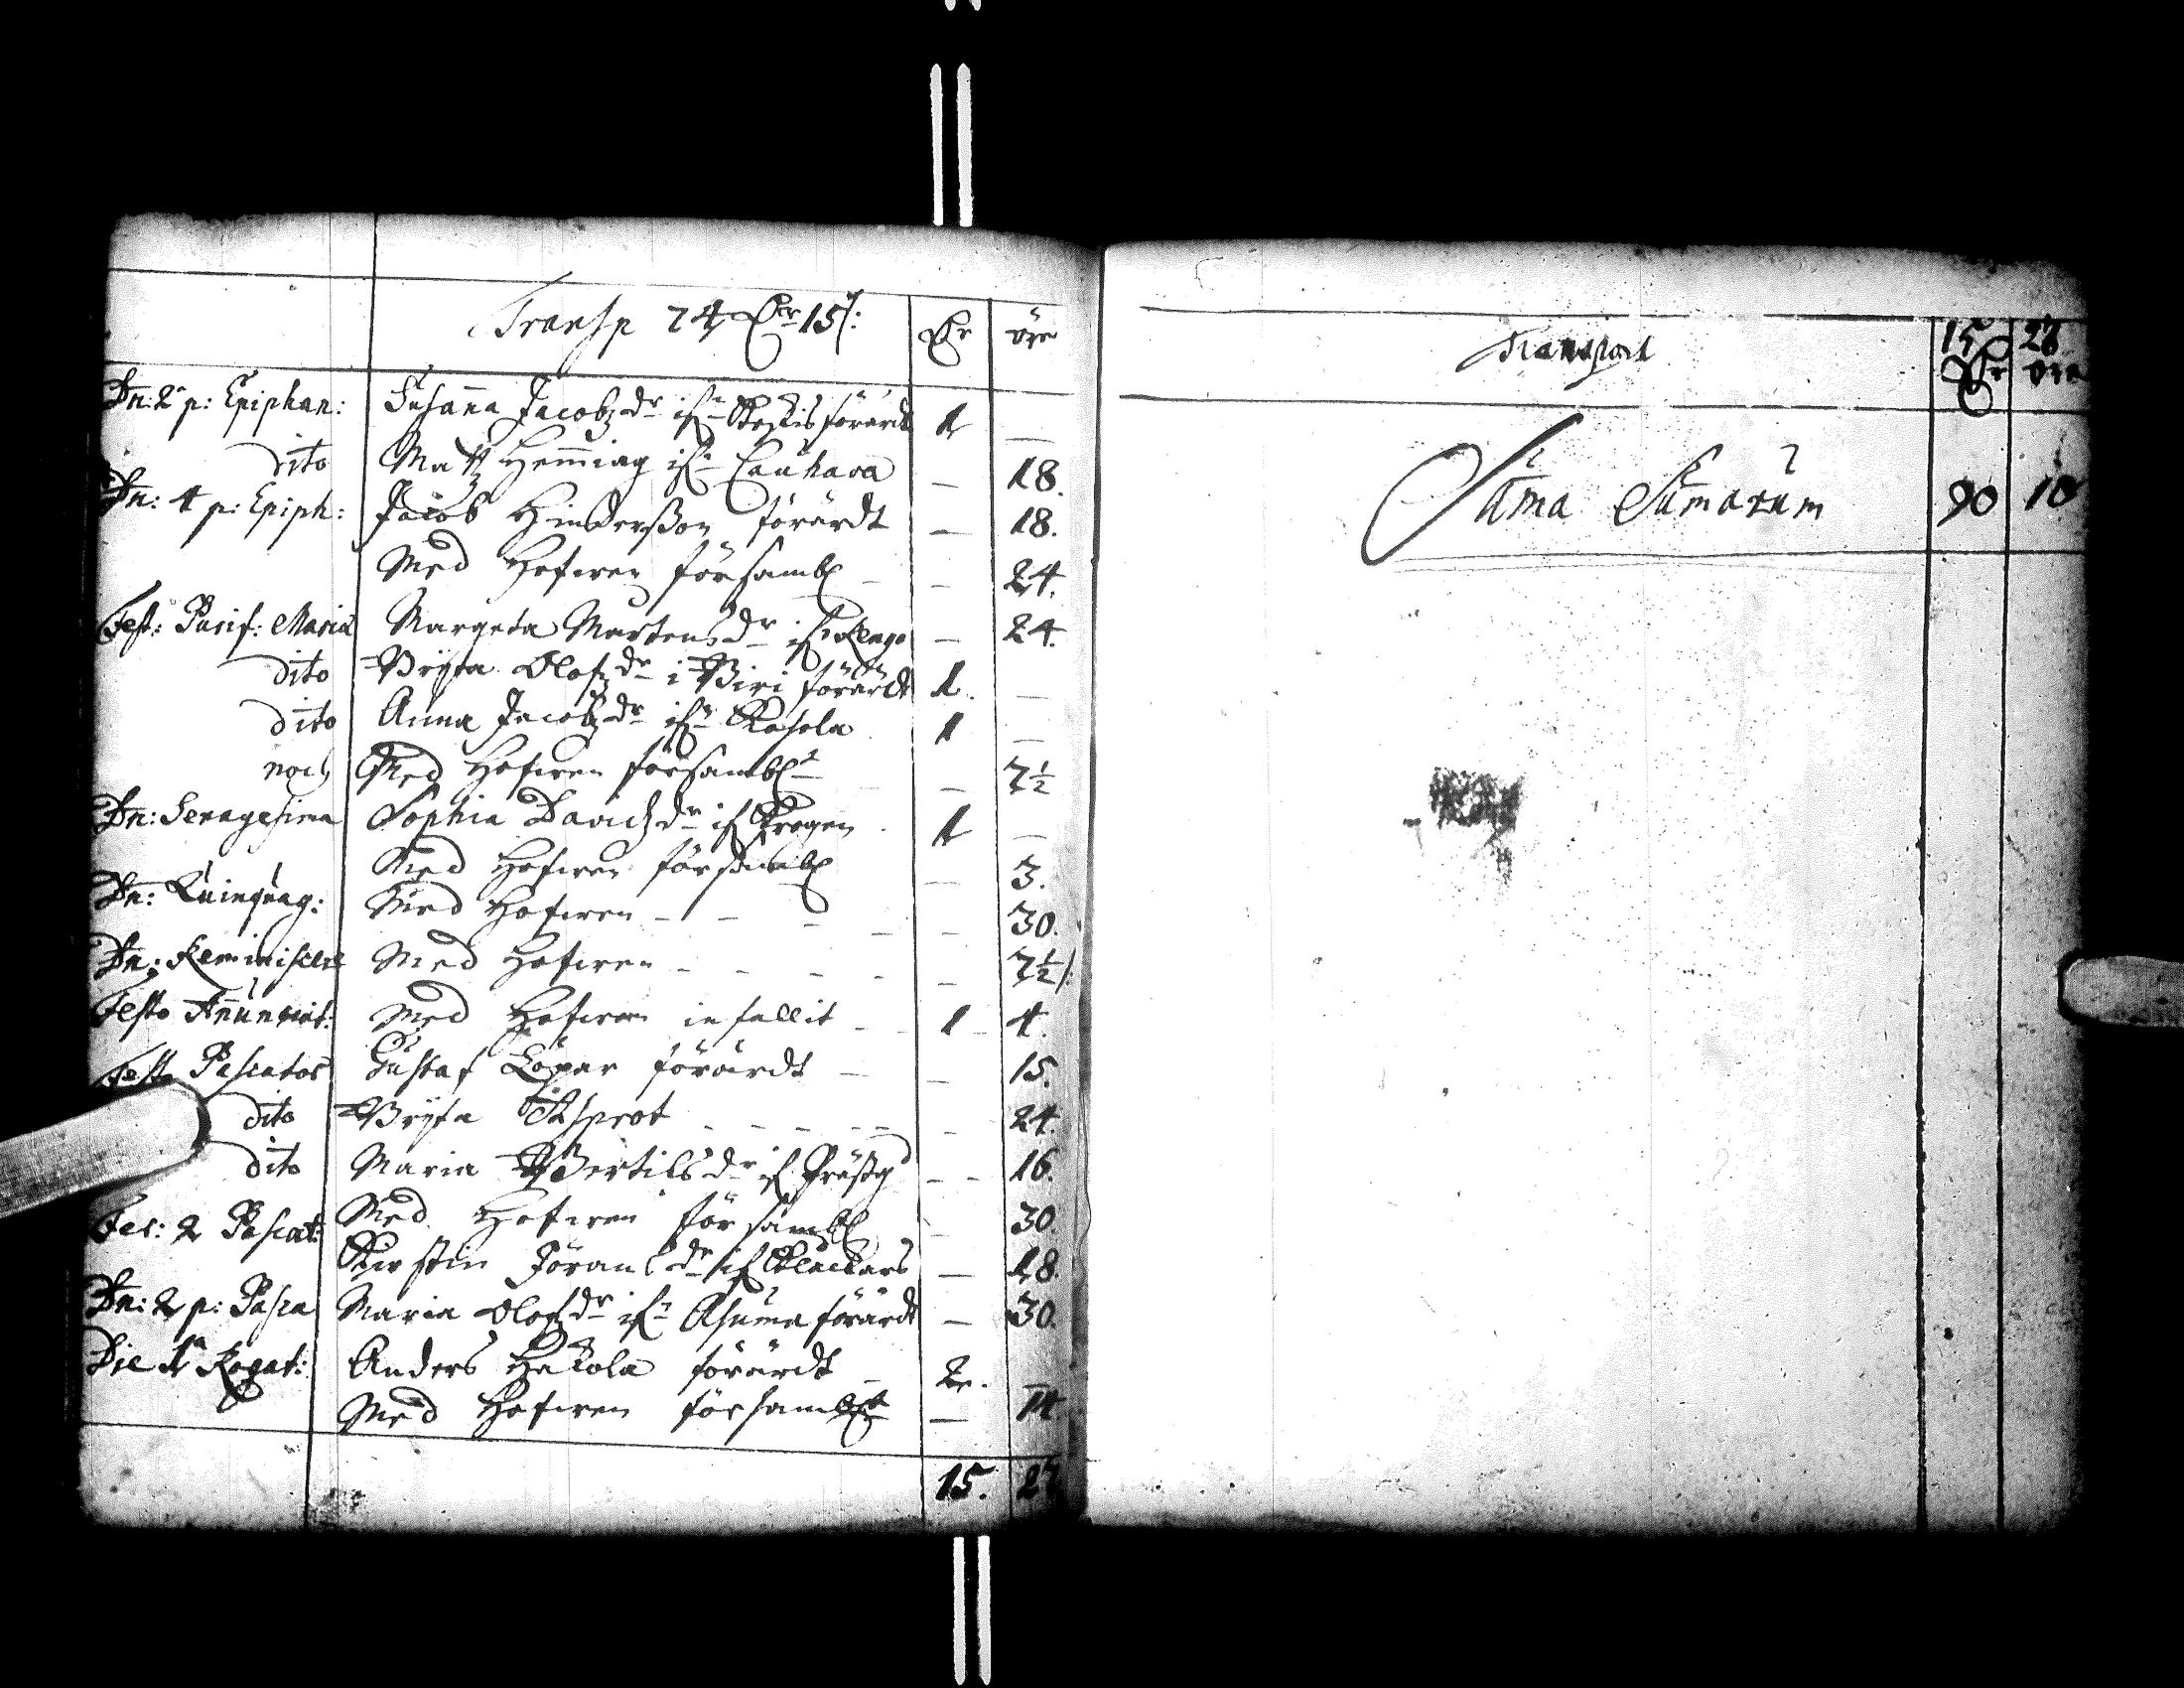 Transp 74 Dr 15/:
Dr öre
Dn: 2 p: Epiphan: Susanna Jacobz dr ifr förärdt 1 —
dito Matz Hemming ifr Lauhava — 18.
Dn: 4 p: Epiph: Jacob Hindersson förärdt — 18.
Med Hofwen försambl — 24.
Fest: Purif: Maria Margeta Mårtens dr ifr — 24.
dito Brijta Olofz dr i förärdt 1. —
dito Anna Jacobz dr ifr Kasola 1 —
noch Med Hofwen församblt — 7½
Dn: Sexagesima Sophia Davidz dr if 1 —
Med Hofwen försambl — 3.
Dn: Quinquag: Med Hofwen — 30.
Dn: Reminiscere Med Hofwen — 7½/:
Festo Annunciat: Med Hofwen infallit 1 4.
Festo Pascatos Gustaf Löpar förärdt — 15.
dito Brijta — 24.
dito Maria Bertils dr if Prästg — 16.
Med Hofwen försambl — 30.
Fer: 2 Pascat: Kirstin Jörans dr if Kleckars — 18.
Dn: 2 p: Pasca Maria Olofz dr ifr Asuma förärdt — 30.
Die 1 Rogat: Anders Hakola förärdt 2. —
Med Hofwen församblt — 14
15. 27
Transport 15 27
Dr öre
Suma Sumarum 90 10